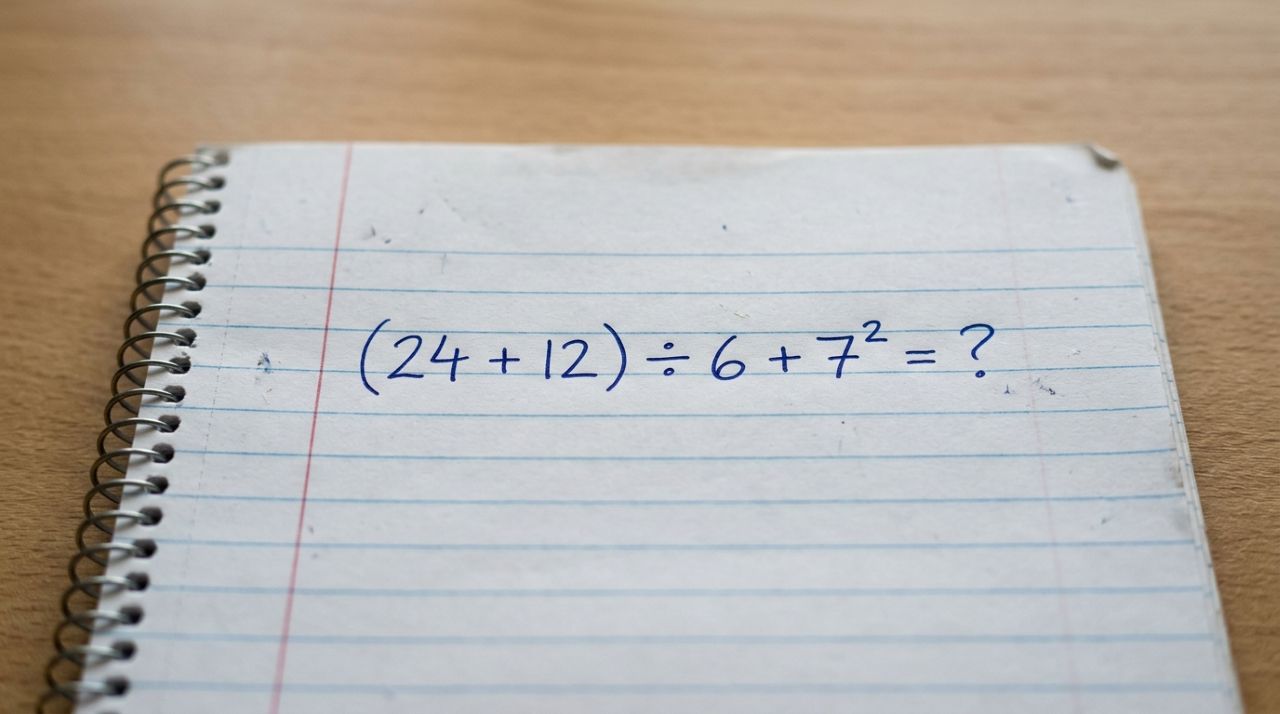 (24 + 12) ÷ 6 + 7² = ?